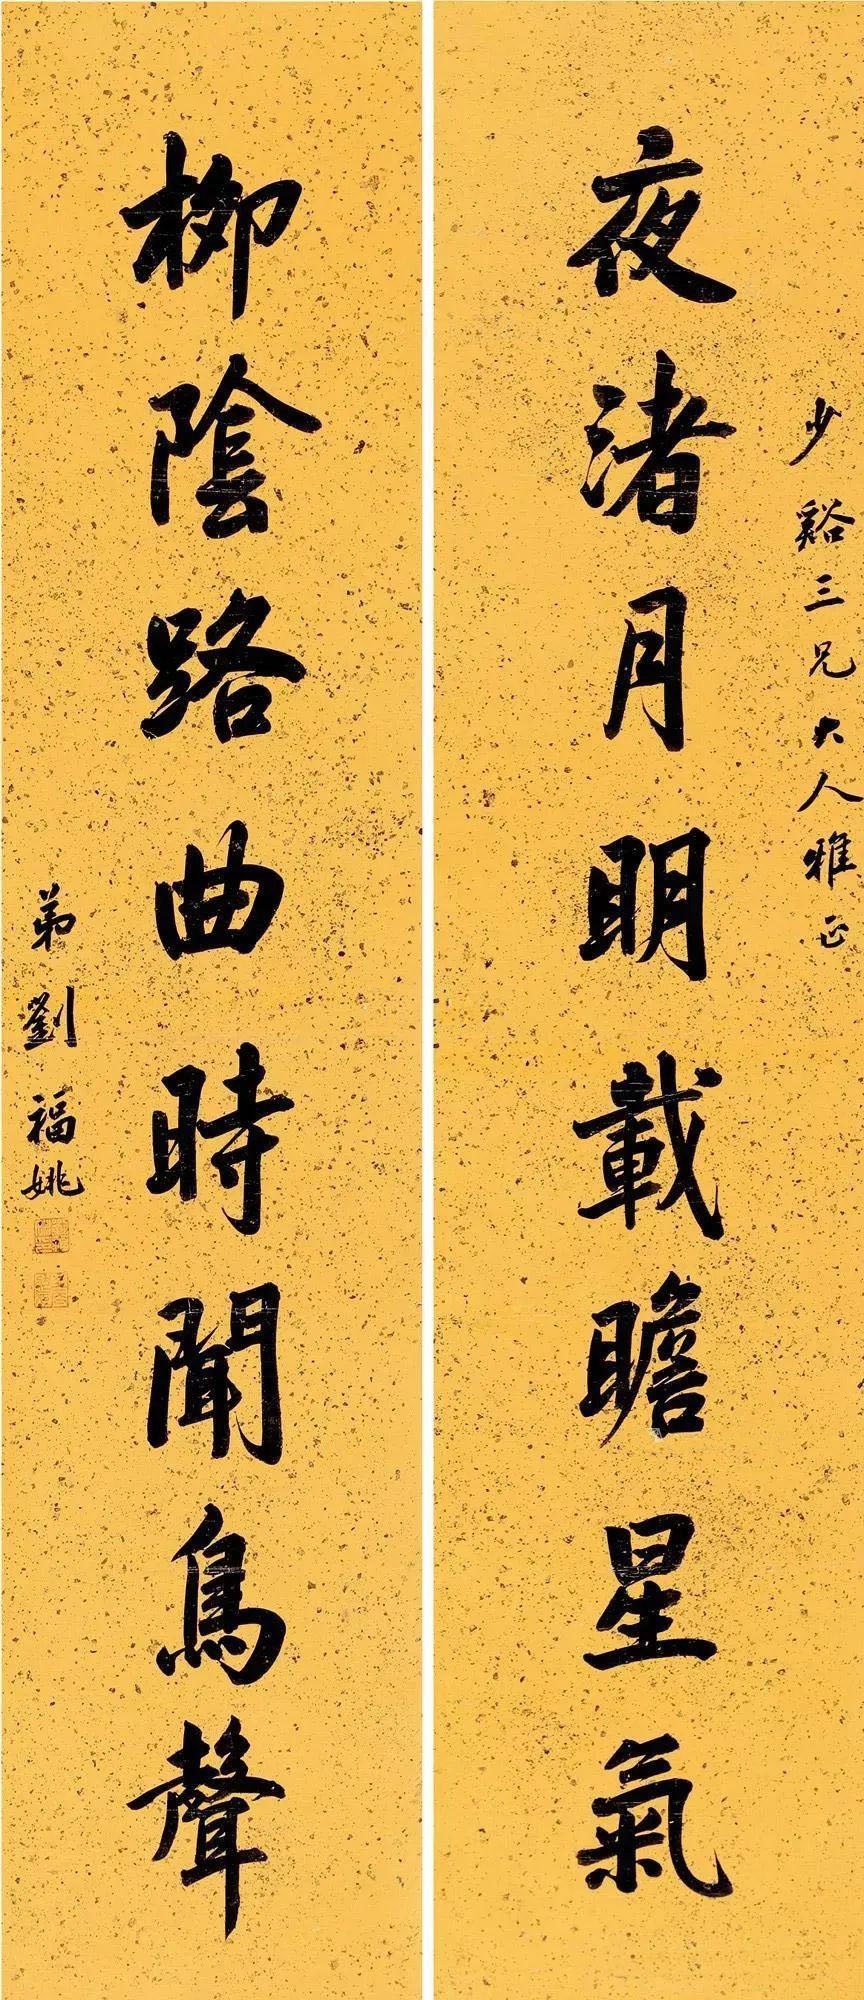 少谿三兄大人雅正
夜渚月明載瞻星氣
柳陰路曲時聞鳥聲
弟劉福姚